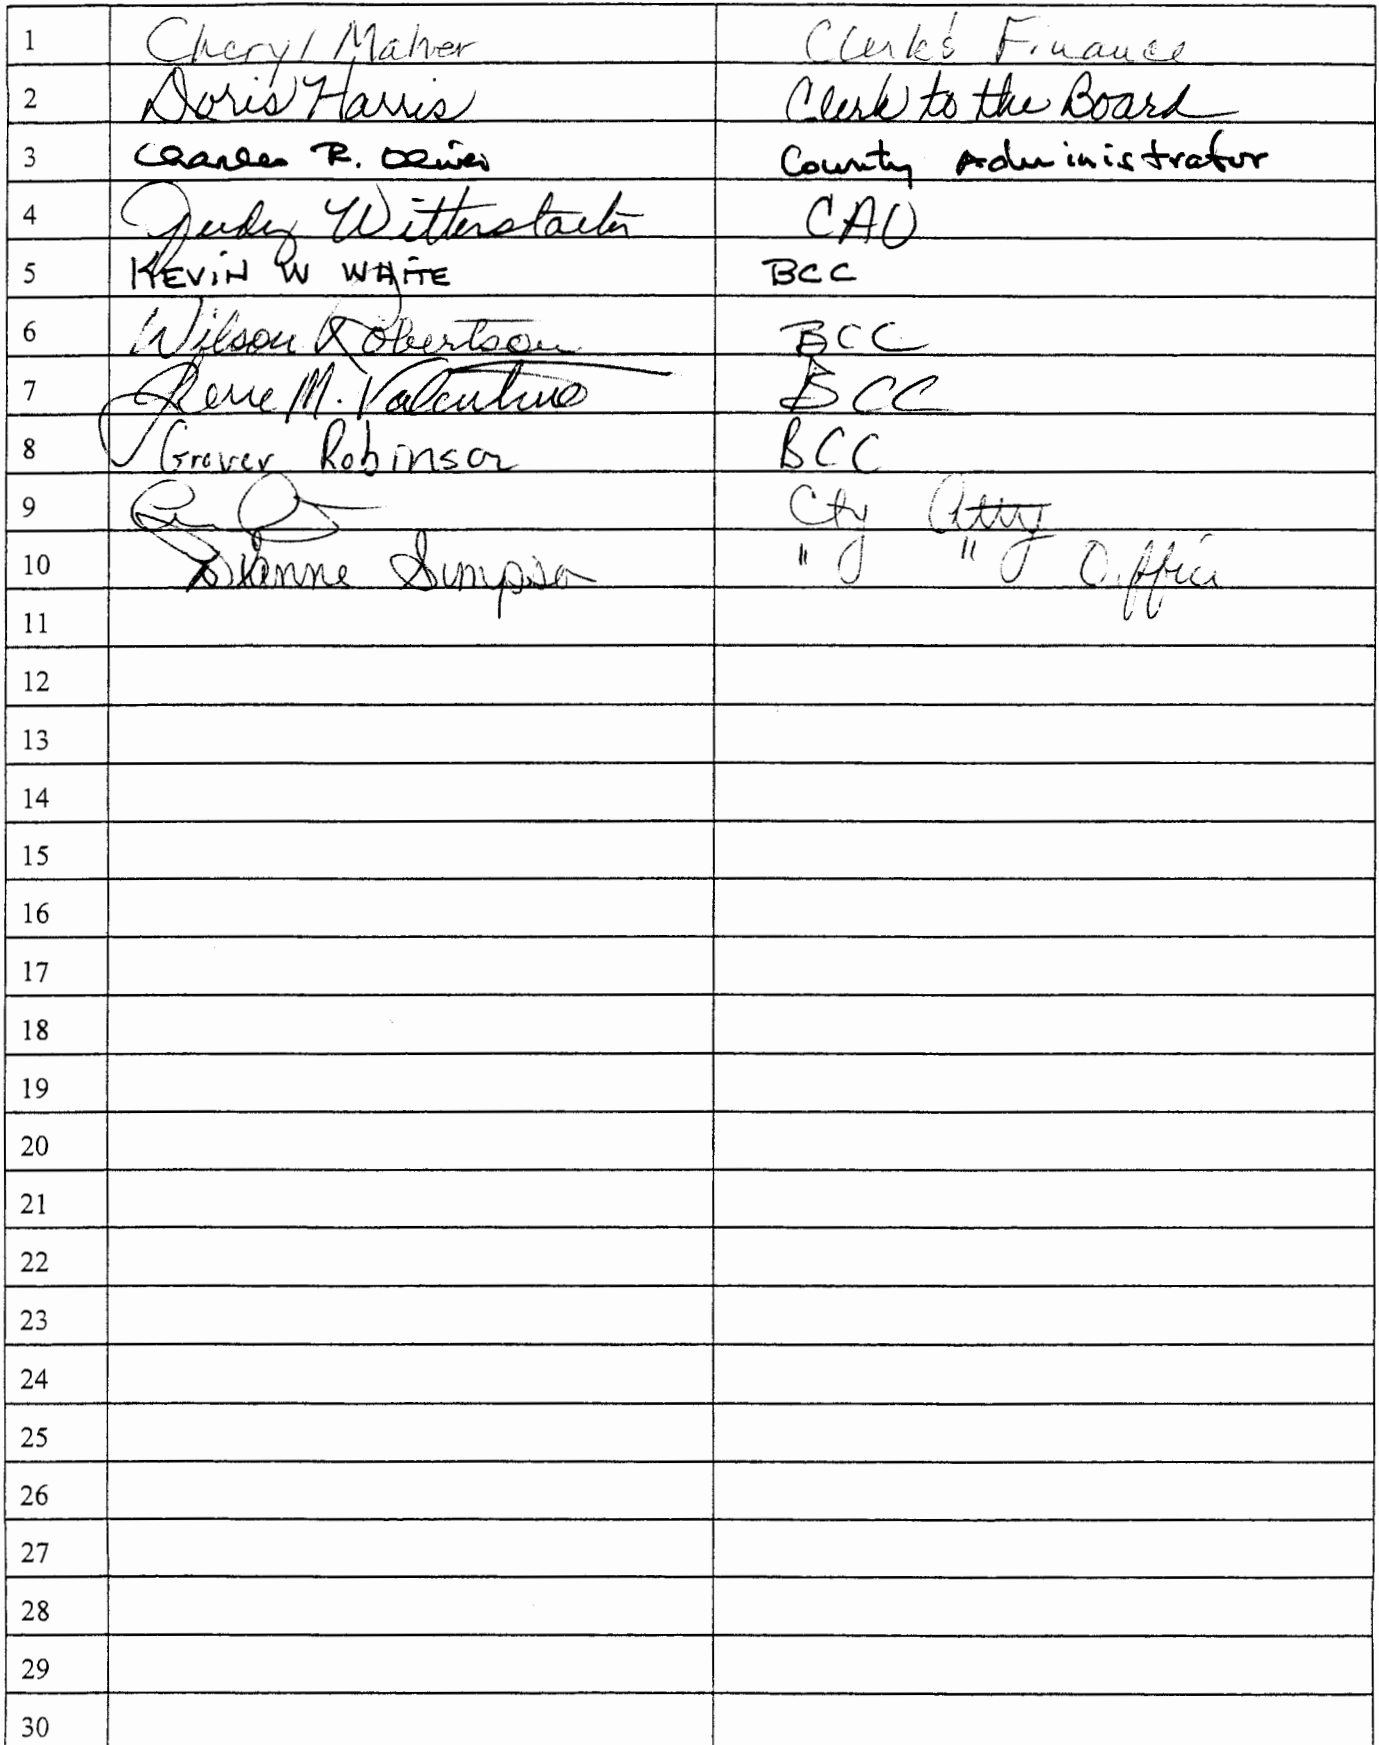 1 Cheryl Maher Clerk's Finance
2 Doris Harris Clerk to the Board
3 Charles R. Oliver County Administrator
4 Judy Witterstaeter CAO
5 KEVIN W WHITE BCC
6 Wilson Robertson BCC
7 Gene M. Valentino BCC
8 Grover Robinson BCC
9 Cty Atty
10 Dianne Simpson " " Office
11
12
13
14
15
16
17
18
19
20
21
22
23
24
25
26
27
28
29
30